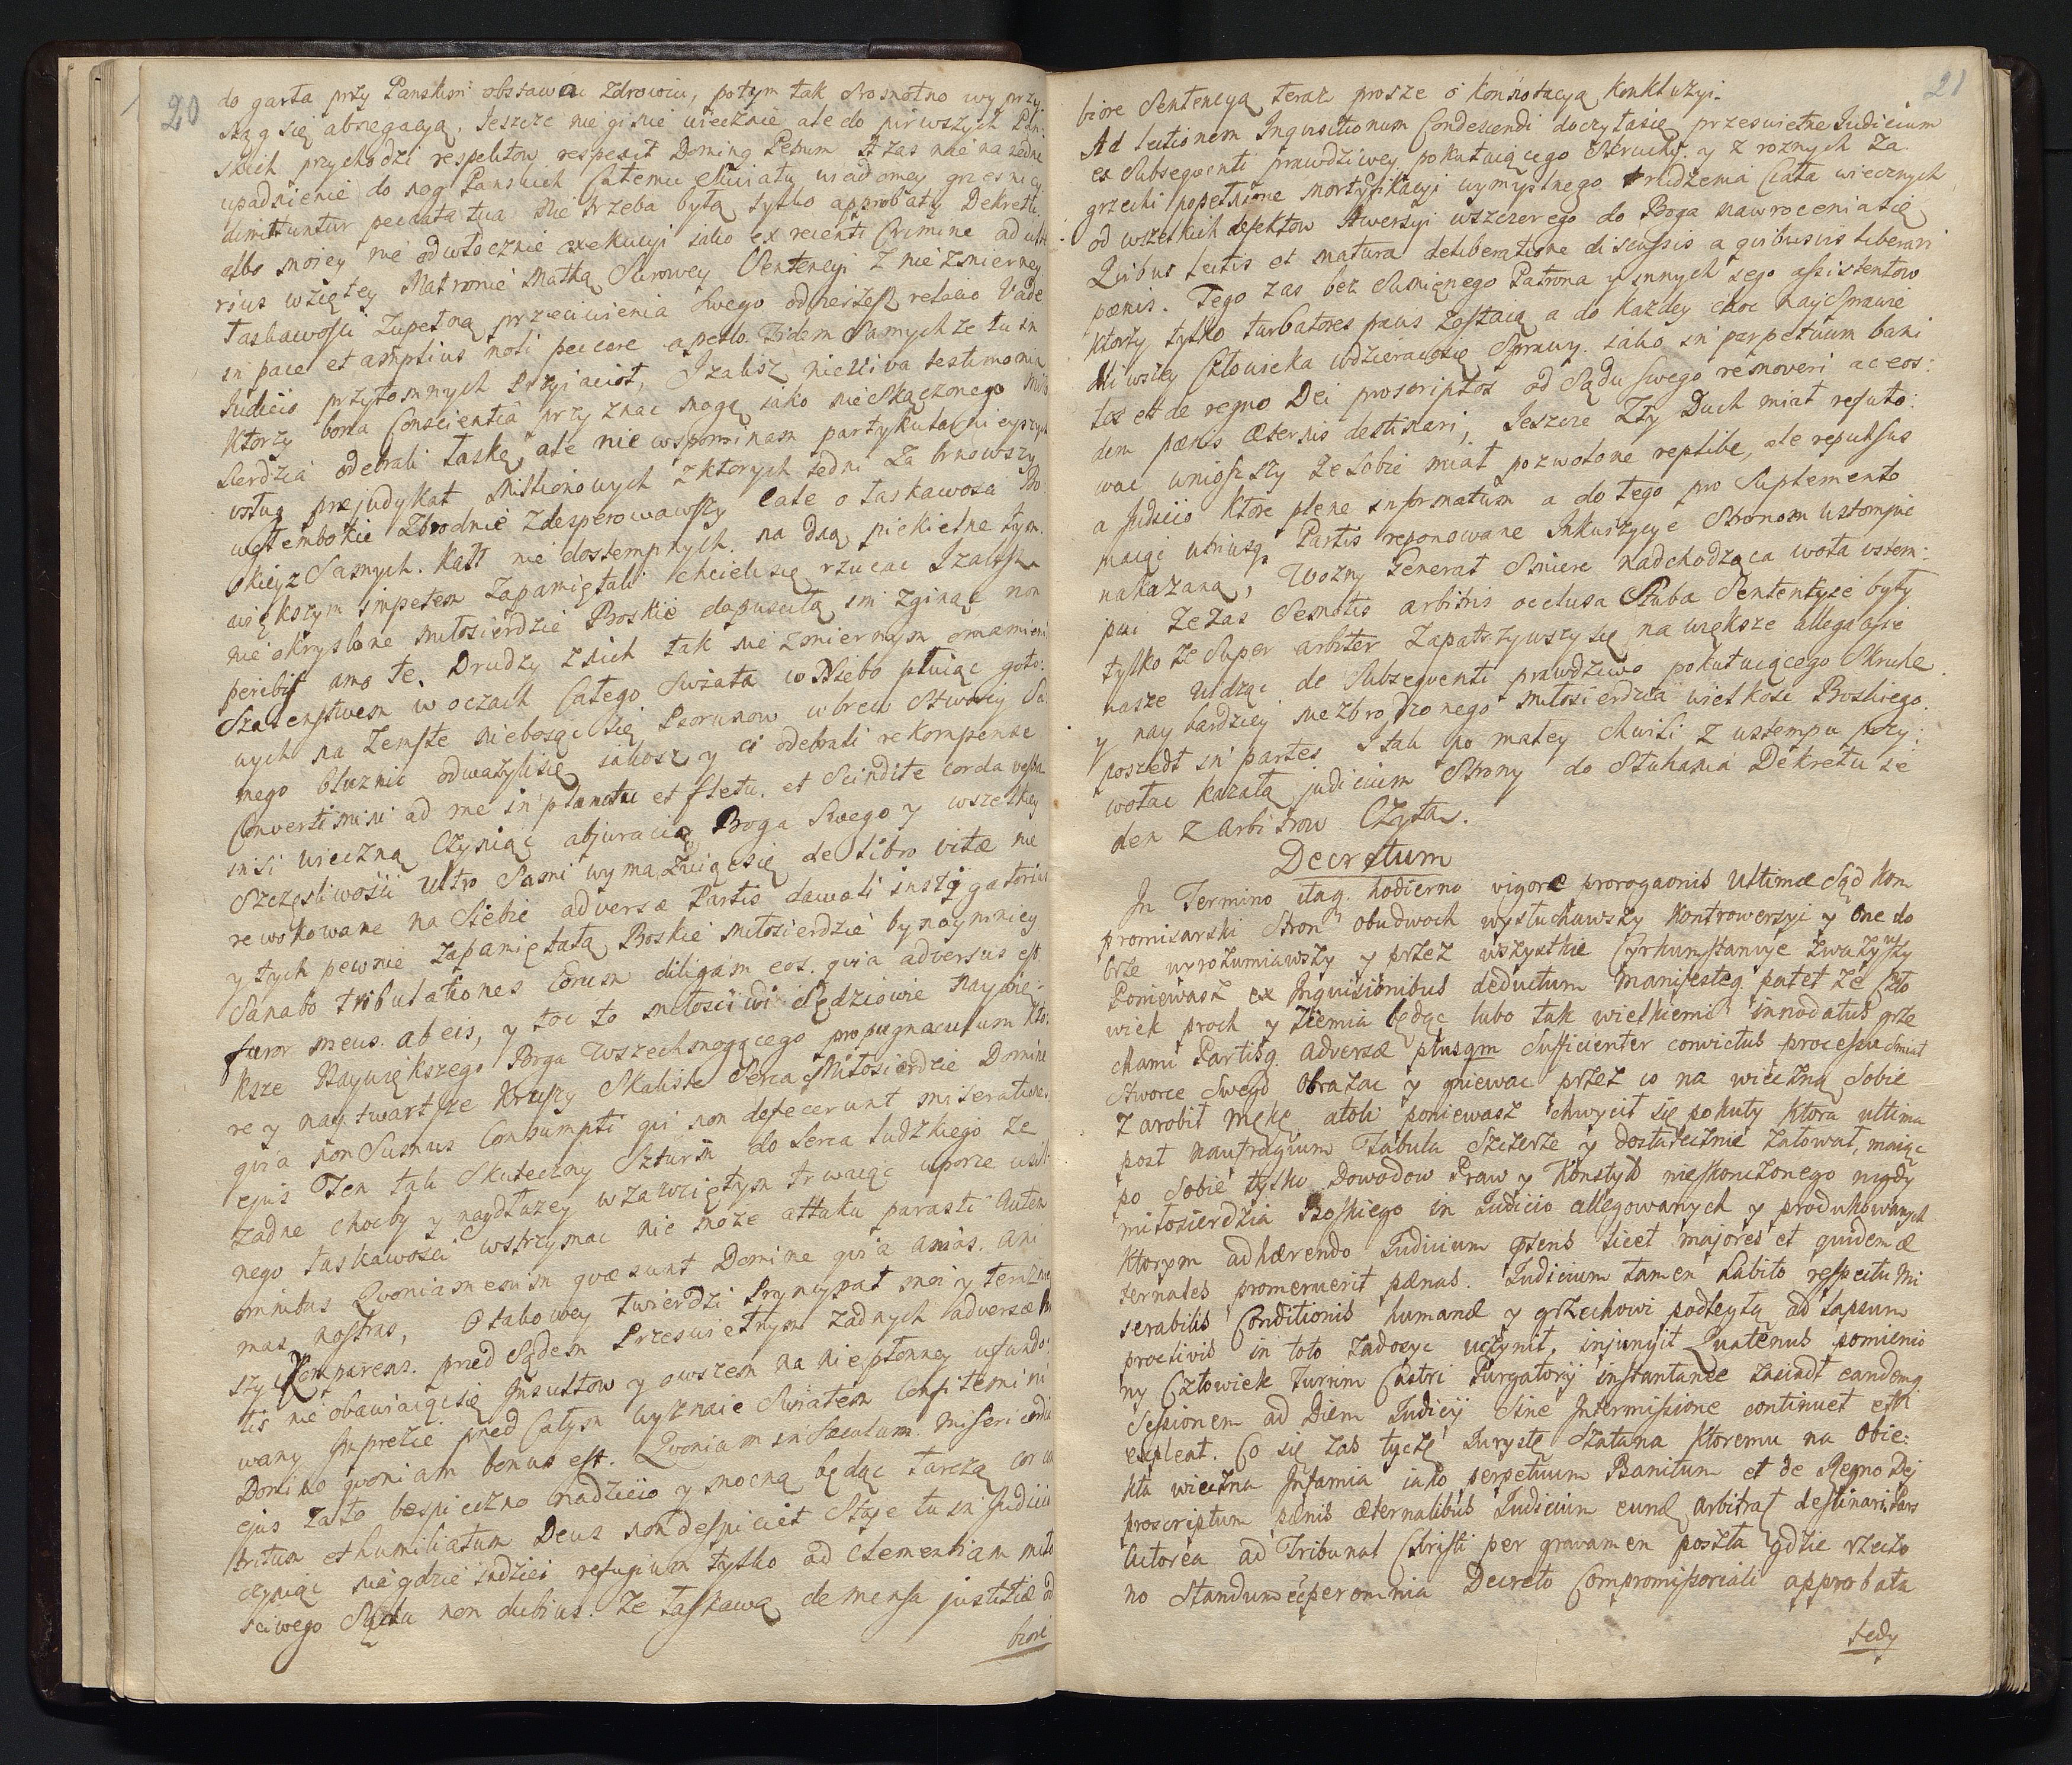 20
do garła przy Panskim obstawać zdrowiu, potym tak sromotno wyprzy
siąg się abnegacyą. Jeszcze nie ginie wiecznie ale do pirwszych Pan
skich przychodzi respektow respexit Doming Petrum A zas nie na jedne
upadnienie do nog Panskich Całemu swiatu wiadomey grzesnicy
dimittuntur peccata tua nie trzeba było tylko approbaty Dekretu
albo moiey nie odwłocznie exekucyi iako ex recenti Crimine
rsus wziętey Matronie Matką Surowey Sentencyi z niezmierney
łaskawosci zupełną przeciwienia swego odniesiesz relaxo Vade
in pace et amplius noli peccare apello Fidem Samychze tu in
Judicio przytomnych Przyiacioł, Izalisz nie viva testimonia
ktorzy bona Conscientia przyznac mogą iako nieskączonego miło
sierdzia odebrali łaskę, ale nie wspominam partykularnieyszych
wstug prejudykat Millionowych z ktorych jedni za brnowszy
w głembokie zbrodnie zdesperowawszy cale o łaskawosci Bo
skiey z Samych. Katt nie dostempnych. na dną piekielne tym
większym impetem zapamiętali chcieli się rzucac Izalisz
nie okryslone miłosierdzie Boskie dopusciła im zginąć non
peribis amo te. Drudzy z nich tak nie zmiernym omamieni
Szalenstwem w oczach Całego Swiata w Niebo pluiąc goto:
wych na zemste niebosąc się Piorunow wbrew Stworcy Sa
mego bluznic odwazyli się iakosz y ci odebrali rekompense
Convertimini ad me in planctu et fletu. et Scindite corda vestra
inisi wieczną Czyniąc abjuracią Boga Swego y wszelkiey
Szczęsliwosci Ultro Sami wymazuiąc się de libro vitæ na
rewskowane na Siebie adversæ Partis dawali instigatoriu
y tych pewnie zapamiętała Boskie miłosierdzie bynaymniey
Sanabo tribulationes Eorum diligam eos. quia adversus est
furor meus. ab eis, y toc to miłosciwi Sędziowie naypie:
ksze Naywiększego Boga Wszechmogącego propugnaculum kto:
re y naytwartsze kruszy Skaliste Serca Miłosierdzie Domini
quia non Sumus Consumpti qui non defecerunt miserationes
ejus Ten tak Skuteczny Szturm do Serca ludzkiego ze
zadne chocby y naydłuzey wzawziętym trwaiąc uporze usil
nego łaskawosci wstrzymac nie moze attaku parasti Autem
omnibus Quoniam enim quæ sunt Domine quia amas. ani
mas nostras, O takowey twierdzi Pryncypał moi y teraz
szy Komparens. pred Sądem Przeswietnym zadnych adversæ
tis nie obawiaiąc się Insultow y owszem na niepłonney ufundo:
wany Imprezie pred Całym wyznaie Swiatem Confitemini
Domino quoniam bonus est. Quoniam in Sæculum Misericordia
ejus Zato bespieczno nadzieio y mocną będąc tarczą cor
tritum et humiliatum Deus non despiciet Staje tu in Judicio
czyniąc niegdzie indziei refugium tylko ad Clementiam miło
sciwego Sądu non dubius. ze łaskawą de mensa justitiæ od
biore
21
biore Sentencyą teraz prosze o konnotacyą konkluzyi.
Ad lectionem Inquisitionum Condescendi doczytasię przeswietne Judicium
ex Subsequenti prawdziwey pokutuiącego Skruchy. y z roznych Za
grzechi popełnione mortyfikacyi wymyslnego trudzenia Ciała wiecznych
od wszelkich defektow Awersyi wszczerego do Boga nawroceniasię
Quibus lectis et matura deliberatione discussis a quibusvis liberari
pænis. Tego zas bez Sumięnego Patrona y innych jego assistentow
ktorzy tylko turbatores pacis zostaią a do kazdey choc naysprawie
dliwszey Człowieka wdzieraiąsię Sprawy. iako in perpetuum bani
tos et de regno Dei proscriptos od Sądu swego removeri ac eos:
dem pænis æternis destinari, Jeszcze zły Duch miał refuto:
wac wniosszy ze sobie miał pozwolone replike, ale repulsus
a Judicio ktore plene informatum a do tego pro Suplemento
maiąc utriusq. Partis reponowane Inkwizycye Stronom ustompic
nakazaną, Wozny Generał Smierc nadchodząca woła ustem:
puic Zezas Semotis arbitris occlusa Stuba Sententyze były
tylko ze Super arbiter zapatrzywszy się na większe allegacyie
nasze widząc de Subsequenti prawdziwo pokutuiącego Skruche
y naybardziey niezbrodzonego miłosierdzia wielkosc Boskiego.
poszedł in partes Itak po małey chwili z ustempu przy:
wołac kazała judicium Strony do Słuhania Dekretu je
den z Arbitrow Czyta.
Decretum
In Termino itaq. hodierno vigore prorogaonis Ultimæ Sąd kom
promisarski Stron obudwoch wysłuchawszy kontrowersyi y one do
brze wyrozumiawszy y przez wszystkie Cyrkumstancye zwazywszy
Poniewasz ex Inquisitionibus deductum manifesteq. patet ze Czło
wiek proch y ziemia będąc lubo tak wielkiemi innodatus grze
chami Partisq. adversæ plusqm Sufficienter convictus processu smiał
Stworce Swego obrazac y gniewac przez co na wieczną Sobie
zarobił mękę atoli poniewasz chwycił się pokuty ktora ultima
post naufragium Tabula Szczerze y dostatecznie załował, maiąc
po Sobie tylko Dowodow Praw y Konstyt nieskonczonego nigdy
miłosierdzia Boskiego in Judicio allegowanych y produkowanych
ktorym adhærendo Judicium prens licet majores et quidem æ
ternales promeruerit pænas. Judicium tamen habito respectu Mi
serabilis Conditionis humanæ y grzechowi podległą ad lapsum
proclivis in toto zadosyc uczynił, injunxit Quatenus pomienio
ny Człowiek Turrim Castri Purgatorij instantanee zasiadł eandemq
Sessionem ad Diem Judicij Sine Intermissione continuet et
expleat. Co się zas tycze Jurystę Szatana ktoremu na Obie:
kta wieczna Infamia iako perpetuum Banitum et de Regno Dej
proscriptum pænis æternalibus Judicium eund arbitrat destinari. Pars
Actorea ad Tribunal Christi per gravamen poszła gdzie rzeczo
no Standum eë per omnia Decreto Compromissoriali approbata
tedy